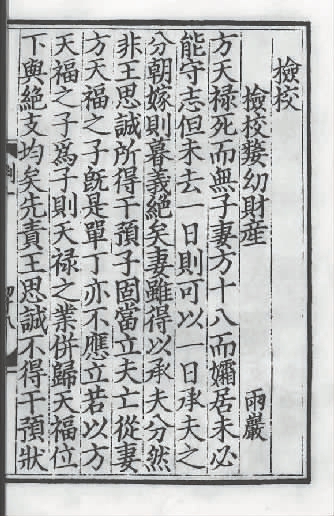 檢校
檢校嫠幼財産 雨巖
方天禄死而無子妻方十八而孀居未必
能守志但未去一日則可以一日承夫之
分朝嫁則暮義絶矣妻雖得以承夫分然
非王思誠所得干預子固當立夫亡從妻
方天福之子旣是單丁亦不應立若以方
天福之子爲子則天禄之業併歸天福位
下與絶支均矣先責王思誠不得干預狀